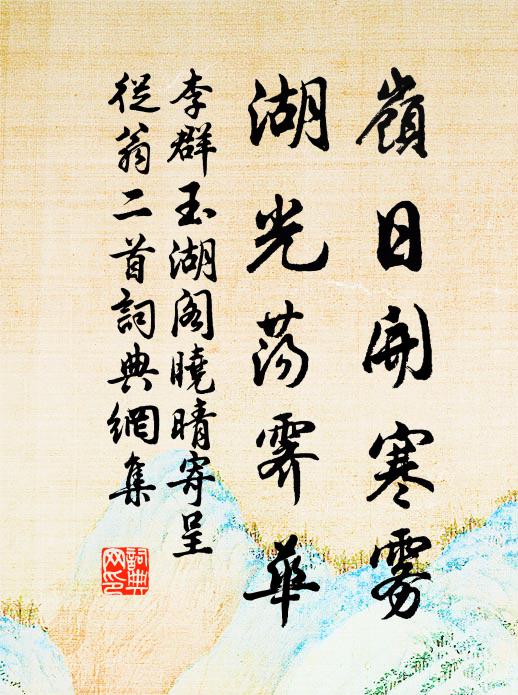 嶺日開寒霧
湖光蕩霽華
李群玉湖阁曉晴寄呈
從翁二首詞典網集
詞典網印